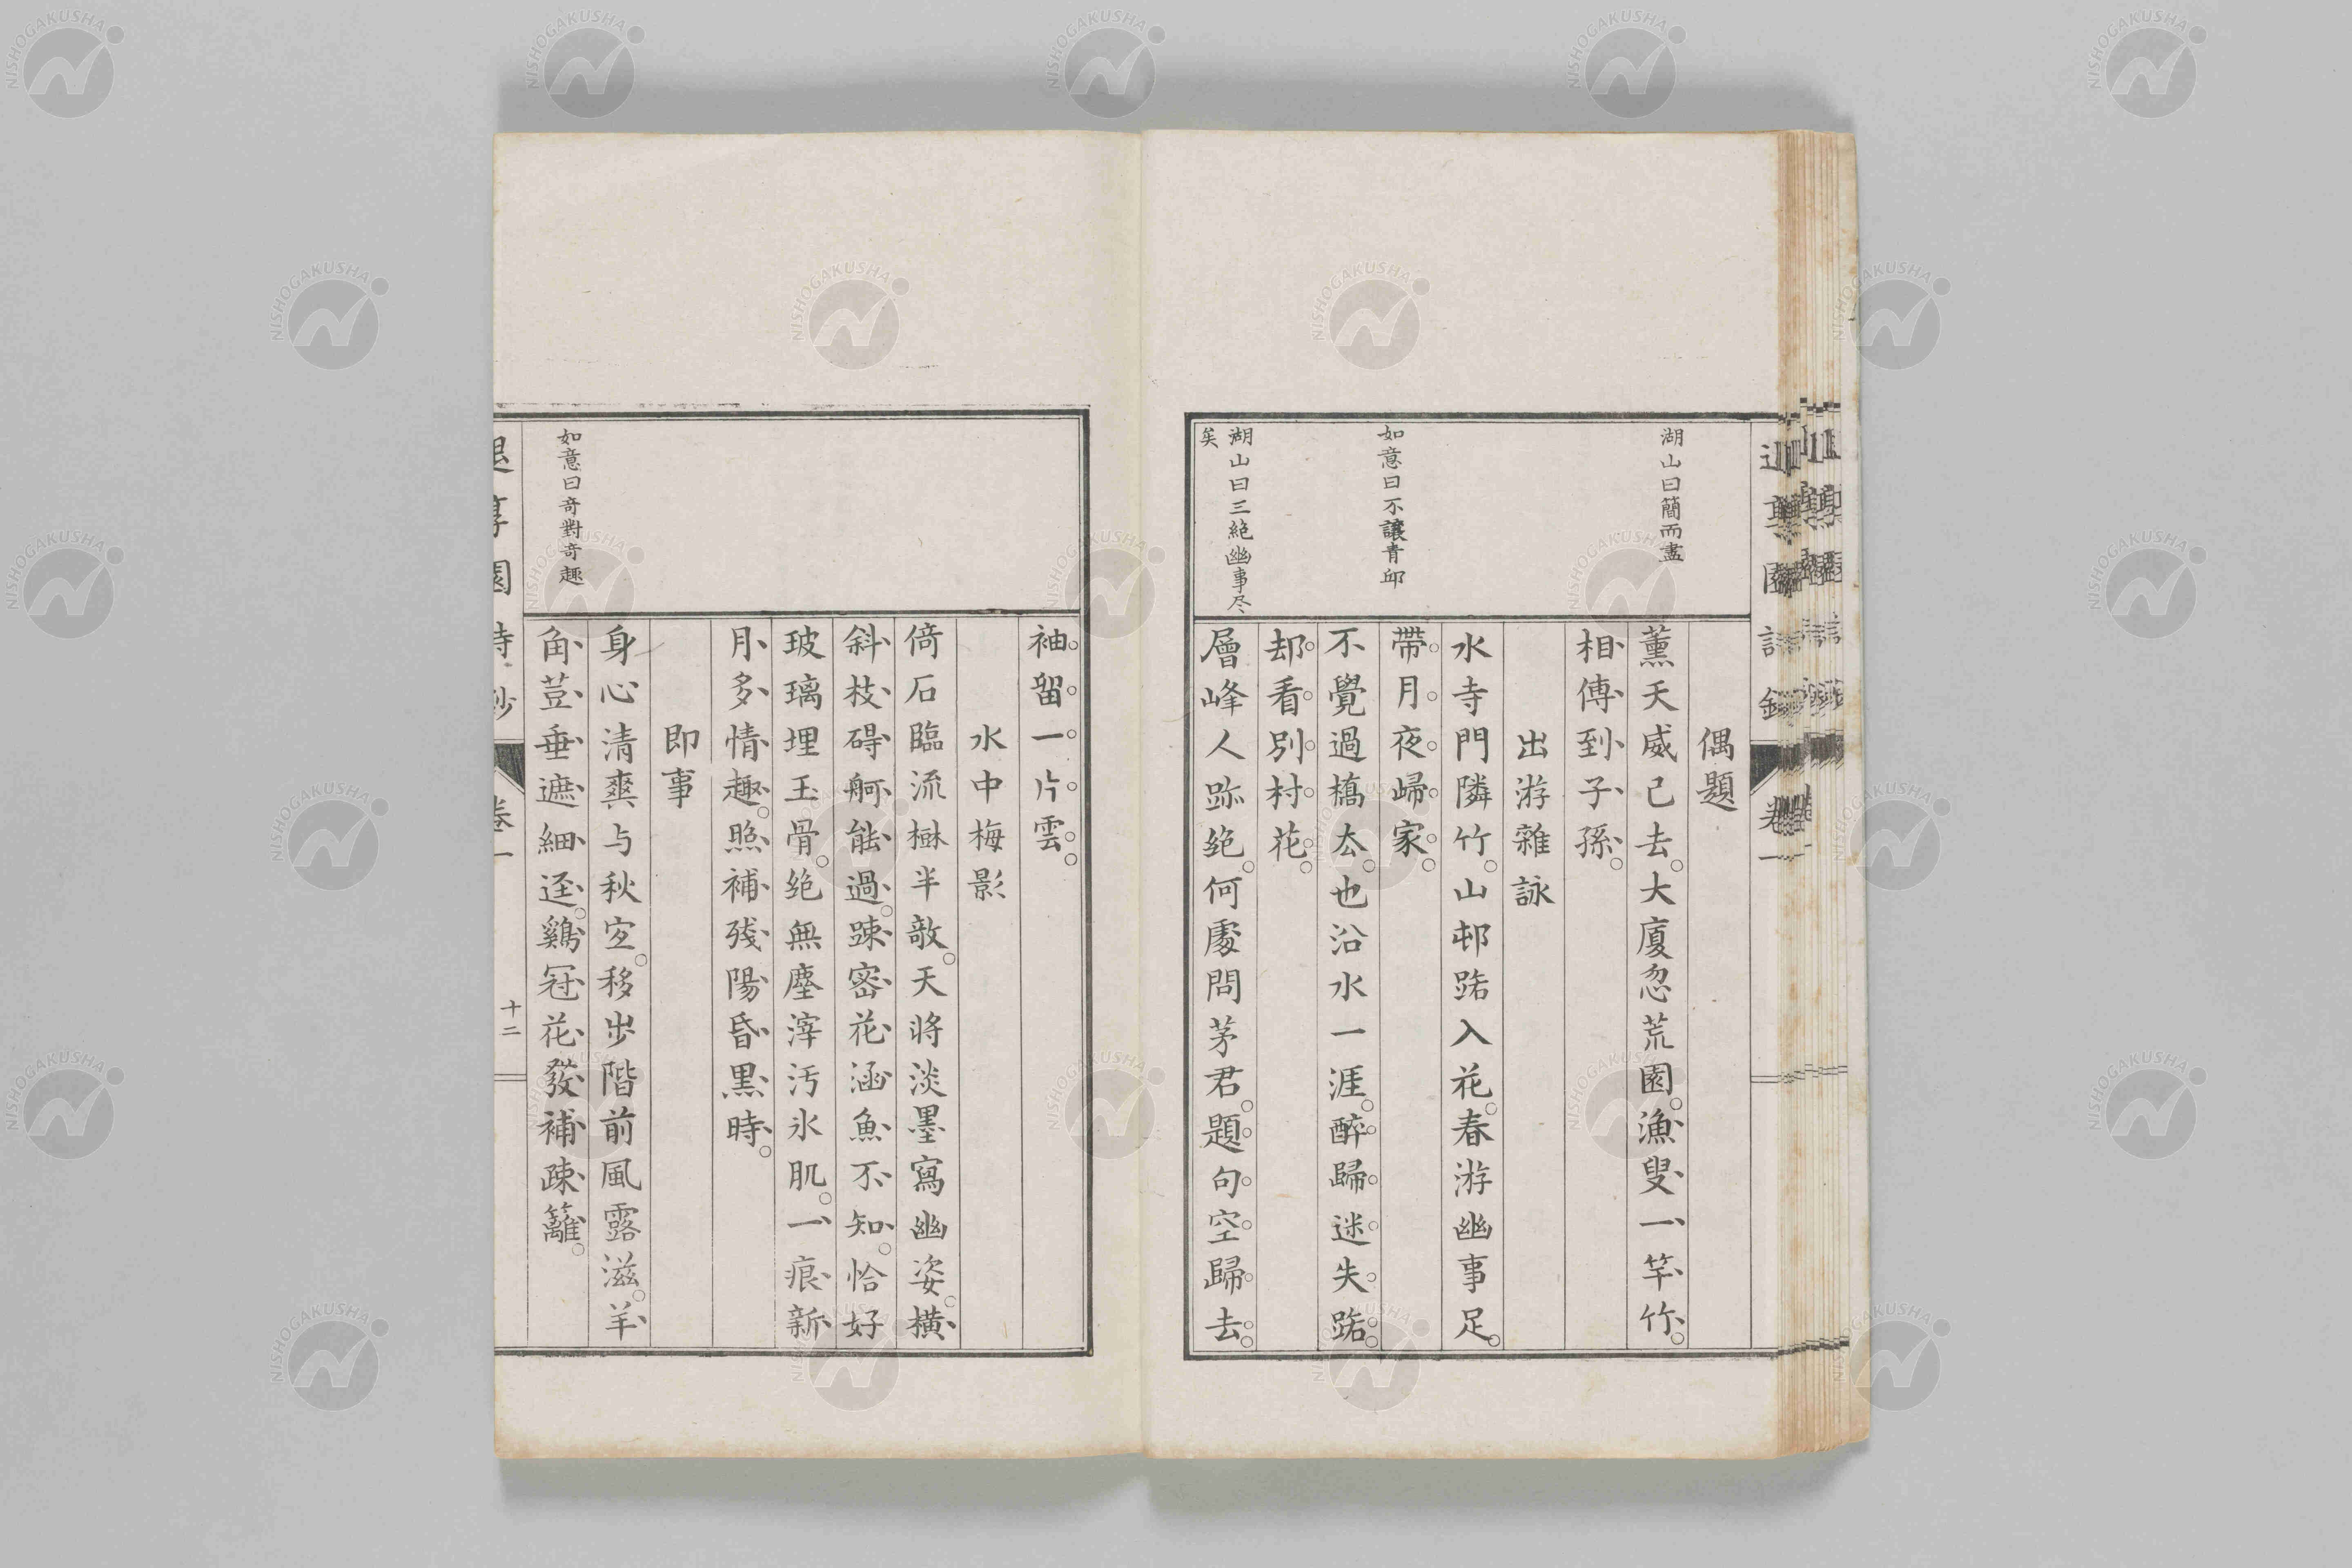 湖山曰簡而盡
如意曰不讓青邱
湖山曰三絶幽事尽
矣
偶題
薰天威已去。大廈忽荒園。漁叟一竿竹。
相傳到子孫。
出游雜詠
水寺門隣竹。山邨路入花。春游幽事足。
帶月夜歸家。
不覺過橋去。也沿水一涯。醉歸迷失路。
却看別村花。
層峰人跡絶。何處問茅君。題句空歸去。
如意曰奇對奇趣
袖留一片雲。
水中梅影
倚石臨流樹半欹。天將淡墨寫幽姿。橫
斜枝碍舸能過。踈密花涵魚不知。恰好
玻璃埋玉骨。絶無塵滓汚氷肌。一痕新
月多情趣。照補殘陽昏黑時。
即事
身心清爽与秋宜。移步階前風露滋。羊
角荳垂遮細逕。鷄冠花發補疎籬。
卷一
十二
NISHOGAKUSHA